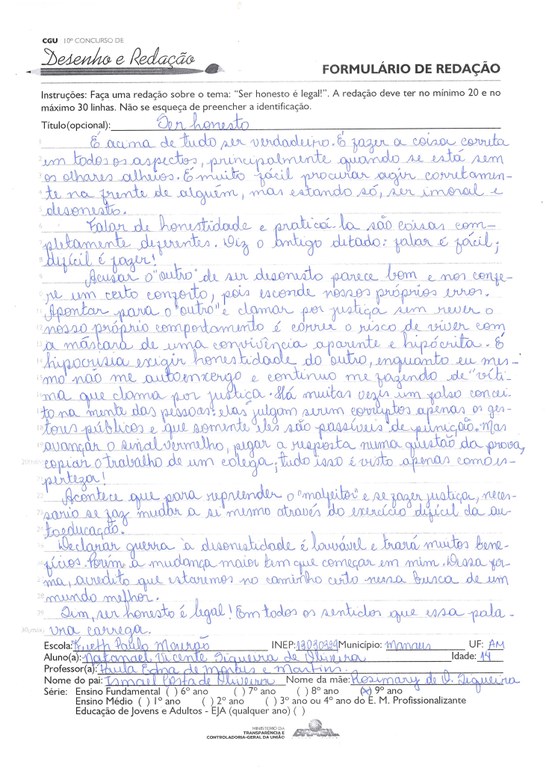 CGU 10º CONCURSO DE
Desenho e Redação
FORMULÁRIO DE REDAÇÃO
Instruções: Faça uma redação sobre o tema: "Ser honesto é legal!". A redação deve ter no mínimo 20 e no
máximo 30 linhas. Não se esqueça de preencher a identificação.
Título(opcional): Ser honesto
É acima de tudo ser verdadeiro. É fazer a coisa correta
em todos os aspectos, principalmente quando se está sem
os olhares alheios. É muito fácil procurar agir corretamen-
te na frente de alguém, mas estando só, ser imoral e
desonesto.
Falar de honestidade e praticá la são coisas com-
pletamente diferentes. Diz o antigo ditado: falar é fácil;
difícil é fazer!
Acusar o "outro" de ser desonesto parece bom e nos confe-
re um certo conforto, pois esconde nossos próprios erros.
Apontar para o "outro" e clamar por justiça sem rever o
nosso próprio comportamento é correr o risco de viver com
a máscara de uma convivência aparente e hipócrita. É
hipocrisia exigir honestidade do outro, enquanto eu mes-
mo não me autoenxergo e continuo me fazendo de "víti-
ma que clama por justiça. Há muitas vezes um falso concei-
to na mente das pessoas: elas julgam serem corruptos apenas os ges-
tores públicos e que somente eles são passíveis de punição. Mas
avançar o sinal vermelho, pegar a resposta numa questão da prova,
copiar o trabalho de um colega, tudo isso é visto apenas como es-
perteza!
Acontece que para repreender o "malfeitor" e se fazer justiça, neces-
sário se faz mudar a si mesmo através do exercício difícil da au-
toeducação.
Declarar guerra à desonestidade é louvável e trará muitos bene-
fícios. Porém a mudança maior tem que começar em mim. Dessa for-
ma, acredito que estaremos no caminho certo nessa busca de um
mundo melhor.
Sim, ser honesto é legal! Em todos os sentidos que essa pala-
vra carrega.
Escola: Ruth Mourão INEP: Município: Manaus UF: AM
Aluno(a): Natanael Vicente Siqueira de Oliveira Idade: 14
Professor(a): Paula Edna de Morais e Martins
Nome do pai: Ismael Costa de Oliveira Nome da mãe: Rosimary de O. Siqueira
Série: Ensino Fundamental ( ) 6º ano ( ) 7º ano ( ) 8º ano (x) 9º ano
Ensino Médio ( ) 1º ano ( ) 2º ano ( ) 3º ano ou 4º ano do E. M. Profissionalizante
Educação de Jovens e Adultos - EJA (qualquer ano) ( )
MINISTÉRIO DA
TRANSPARÊNCIA E
CONTROLADORIA-GERAL DA UNIÃO
BRASIL